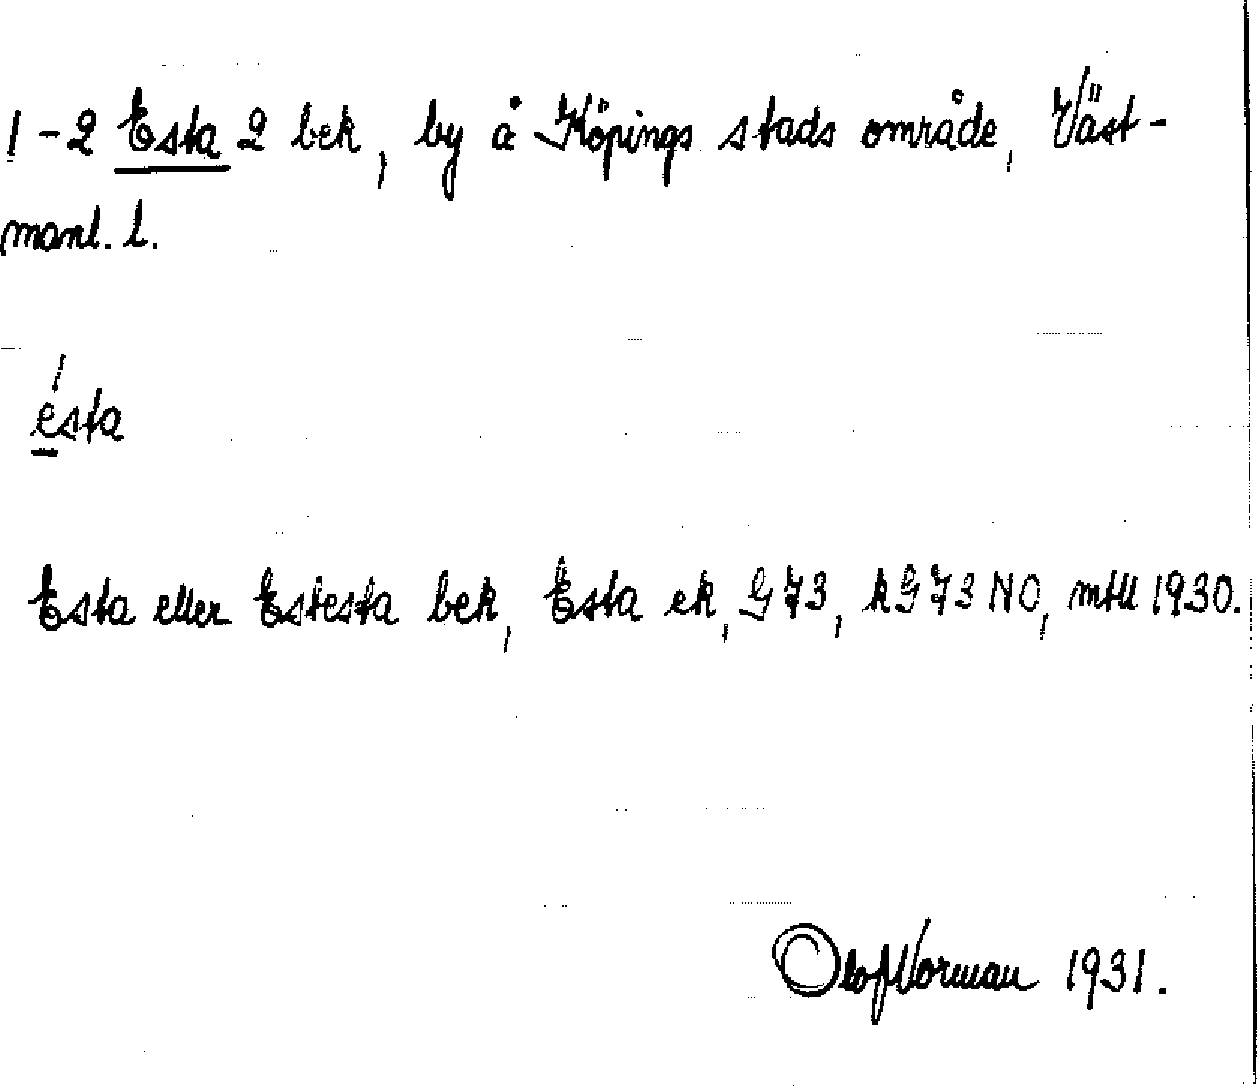 1-2 Esta 2 bek, by å Köpings stads område, Väst-
manl. l.
ésta
Esta eller Estesta bek, Esta ek, G 73, kG 73 NO, mtll 1930.
Olof Norman 1931.